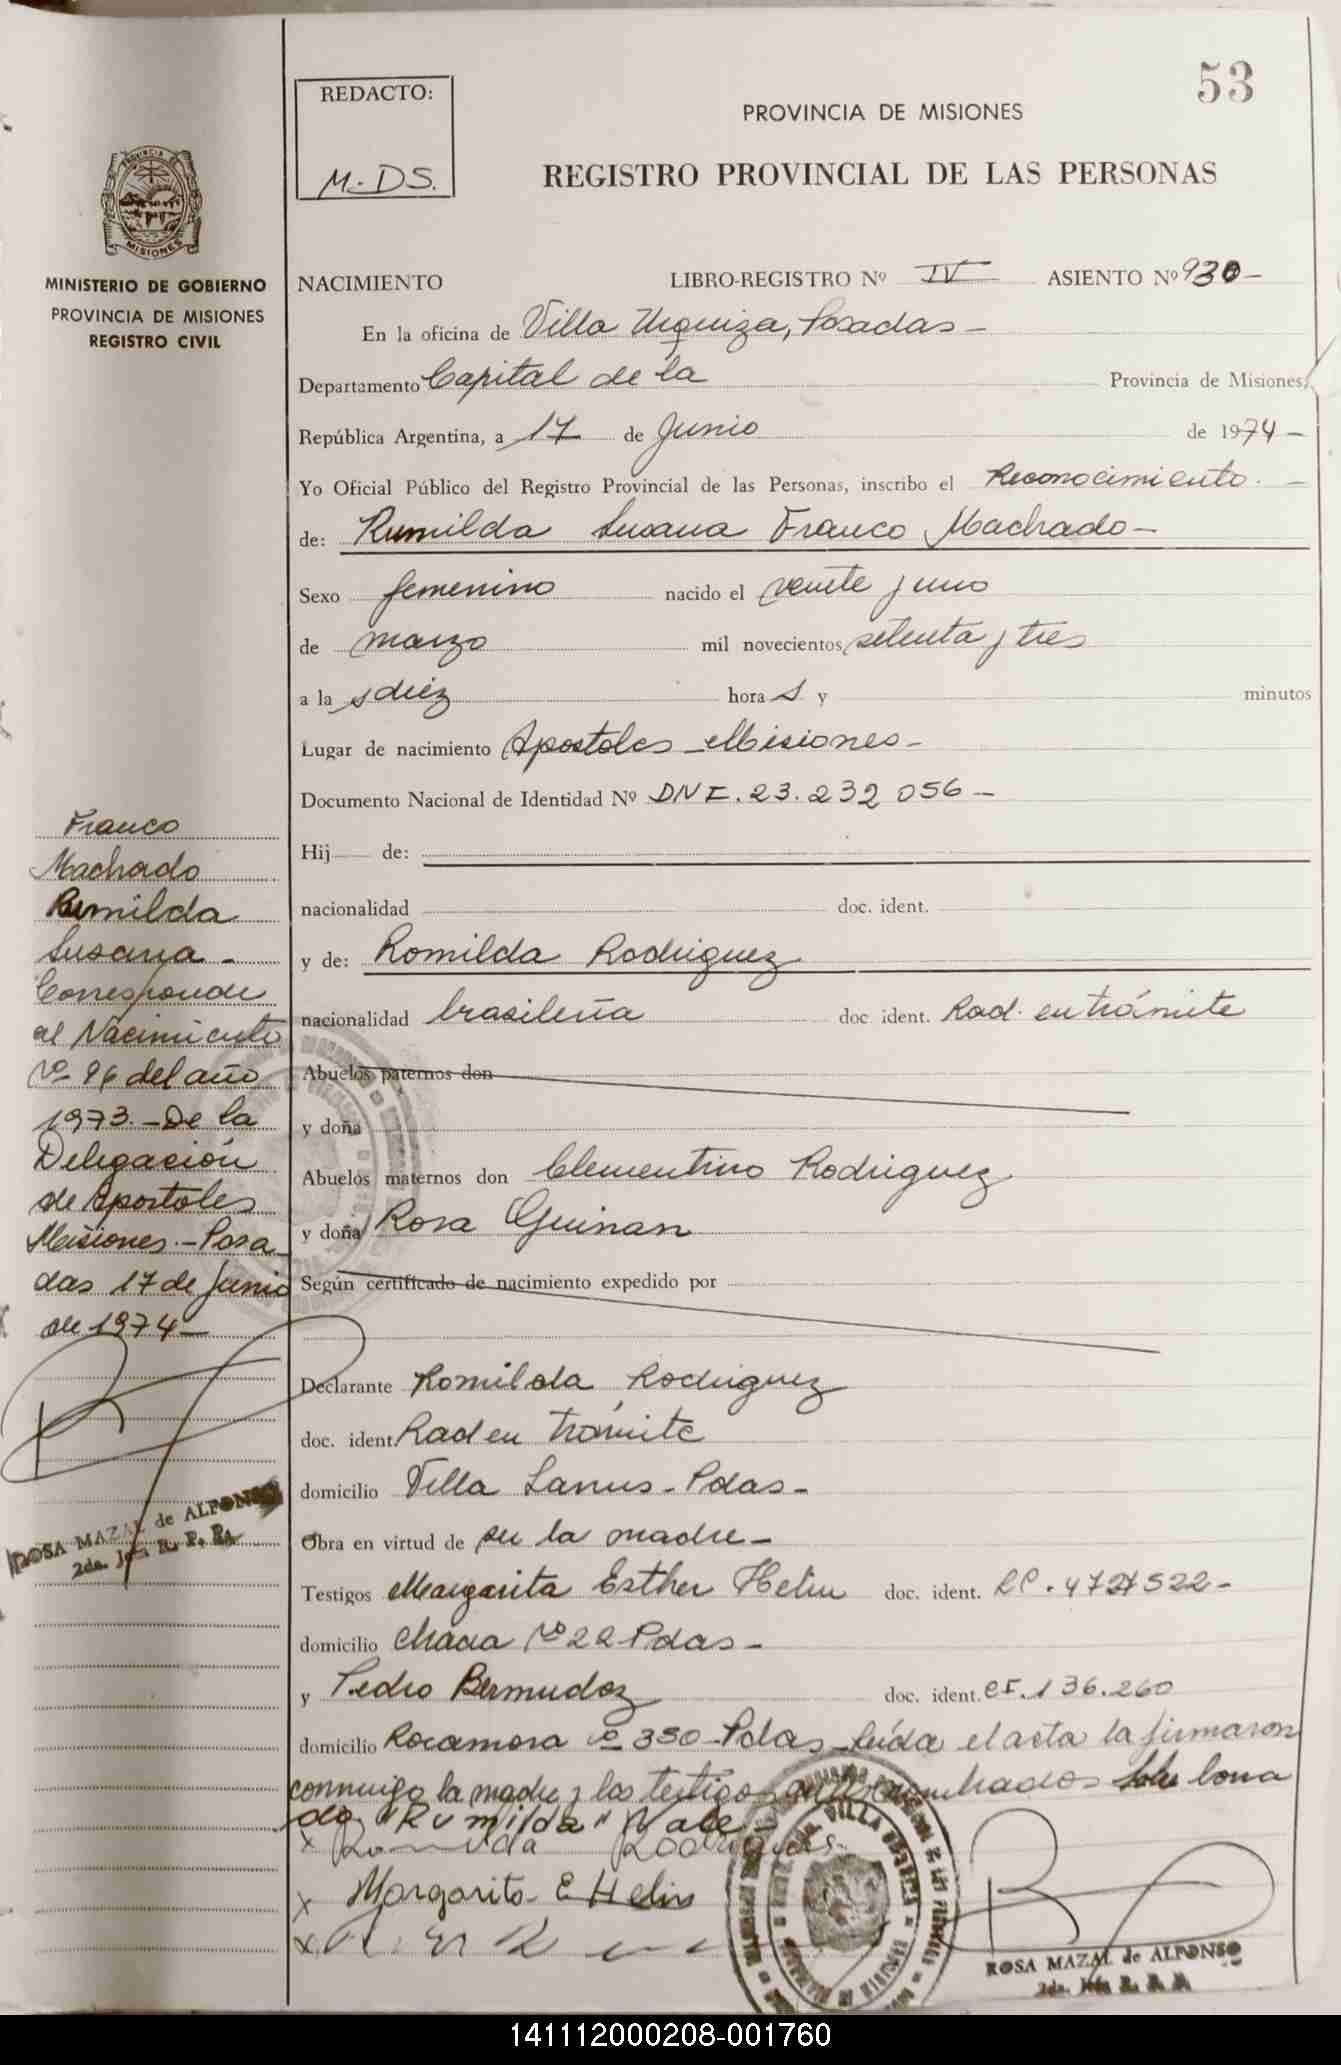 53
REDACTO:
M. DS.
PROVINCIA DE MISIONES
REGISTRO PROVINCIAL DE LAS PERSONAS
PROVINCIA DE
MISIONES
MINISTERIO DE GOBIERNO
PROVINCIA DE MISIONES
REGISTRO CIVIL
NACIMIENTO LIBRO-REGISTRO Nº IV ASIENTO Nº 930-
En la oficina de Villa Urquiza, Posadas-
Departamento Capital de la Provincia de Misiones,
República Argentina, a 17 de Junio de 1974-
Yo Oficial Público del Registro Provincial de las Personas, inscribo el Reconocimiento.-
de: Rumilda Susana Franco Machado-
Sexo femenino nacido el veinte y uno
de marzo mil novecientos setenta y tres
a la s diez hora s y minutos
Lugar de nacimiento Apostoles-Misiones-
Documento Nacional de Identidad Nº DNI. 23.232 056-
Hij de:
nacionalidad doc. ident.
y de: Romilda Rodriguez
nacionalidad brasileña doc. ident. Rad. en trámite
Abuelos paternos don
y doña
Abuelos maternos don Clementino Rodriguez
y doña Rosa Guinan
Según certificado de nacimiento expedido por
Declarante Romilda Rodriguez
doc. ident. Rad en trámite
domicilio Villa Lanus-Pdas-
Obra en virtud de ser la madre-
Testigos Margarita Esther Helin doc. ident.
domicilio Chacra Nº 22 Pdas-
y Pedro Bermudez doc. ident. CI. 136.260
domicilio Rocamora Nº 350-Pdas-Leída el acta la firmaron
conmigo la madre y los testigos
do "Rumilda" Vale-
x Romilda Rodrigues
x Margarita E Helin
x
Franco
Machado
Rumilda
Susana-
Corresponde
al Nacimiento
Nº 96 del año
1973.-De la
Delegación
de Apostoles
Misiones.-Posa
das 17 de Junio
de 1974-
ROSA MAZAL de ALFONSO
ROSA MAZAL de ALFONSO
VILLA URQUIZA
141112000208-001760